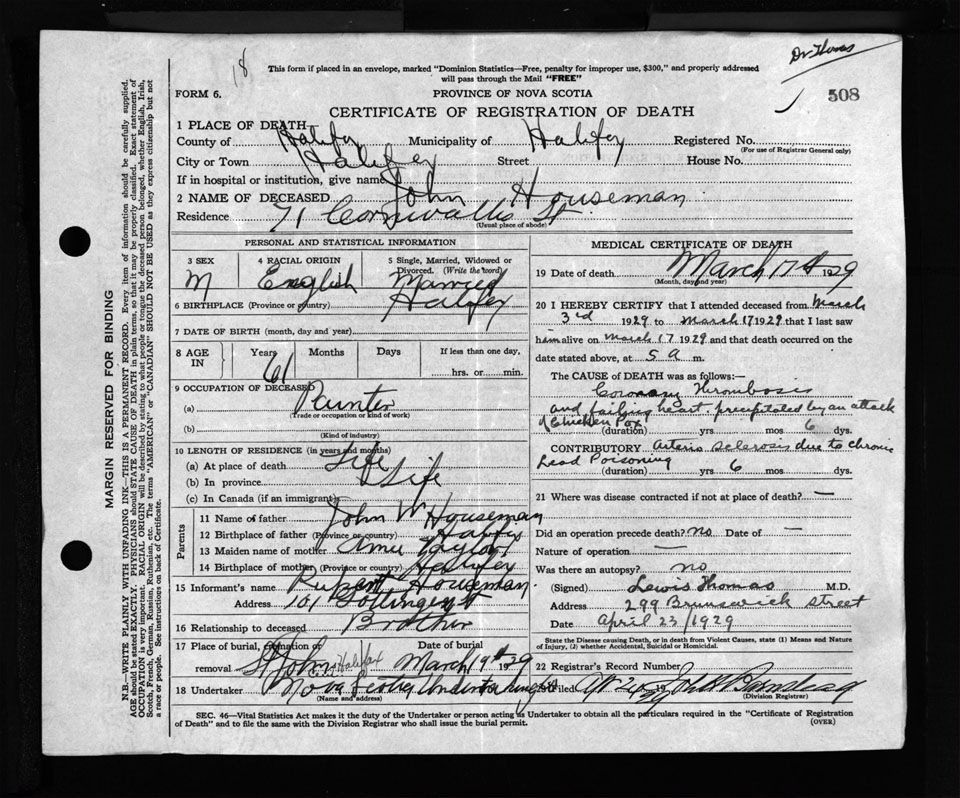 18
Dr Thomas
This form if placed in an envelope, marked "Dominion Statistics—Free, penalty for improper use, $300," and properly addressed
will pass through the Mail "FREE"
FORM 6.
PROVINCE OF NOVA SCOTIA
508
CERTIFICATE OF REGISTRATION OF DEATH
1 PLACE OF DEATH
County of Halifax Municipality of Halifax Registered No.
(For use of Registrar General only)
City or Town Halifax Street House No.
If in hospital or institution, give name
2 NAME OF DECEASED John Houseman
Residence 71 Cornwallis St
(Usual place of abode)
PERSONAL AND STATISTICAL INFORMATION
3 SEX
M
4 RACIAL ORIGIN
English
5 Single, Married, Widowed or
Divorced. (Write the word)
Married
6 BIRTHPLACE (Province or country) Halifax
7 DATE OF BIRTH (month, day and year)
8 AGE
IN
Years 61
Months
Days
If less than one day,
hrs. or min.
9 OCCUPATION OF DECEASED
(a) Painter
(Trade or occupation or kind of work)
(b)
(Kind of industry)
10 LENGTH OF RESIDENCE (in years and months)
(a) At place of death Life
(b) In province Life
(c) In Canada (if an immigrant)
Parents
11 Name of father John W Houseman
12 Birthplace of father (Province or country) Halifax
13 Maiden name of mother Taylor
14 Birthplace of mother (Province or country) Halifax
15 Informant's name Rupert Houseman
Address 101 Gottingen St
16 Relationship to deceased Brother
17 Place of burial, cremation or
removal St Johns Halifax
Date of burial
March 19th 1929
18 Undertaker Nova Scotia Undertaking Co
(Name and address)
MEDICAL CERTIFICATE OF DEATH
19 Date of death March 17th 1929
(Month, day and year)
20 I HEREBY CERTIFY that I attended deceased from March
3rd 1929 to March 17 1929 that I last saw
him alive on March 17 1929 and that death occurred on the
date stated above, at 5 a m.
The CAUSE of DEATH was as follows:—
Coronary Thrombosis
and failing heart. precipitated by an attack
of Chicken Pox
(duration) yrs mos 6 dys.
CONTRIBUTORY Arterio sclerosis due to chronic
Lead Poisoning
(duration) yrs 6 mos dys.
21 Where was disease contracted if not at place of death? —
Did an operation precede death? no Date of —
Nature of operation —
Was there an autopsy? no
(Signed) Lewis Thomas M.D.
Address 299 Brunswick Street
Date April 23/1929
State the Disease causing Death, or in death from Violent Causes, state (1) Means and Nature
of Injury, (2) whether Accidental, Suicidal or Homicidal.
22 Registrar's Record Number
Filed
(Division Registrar)
SEC. 46—Vital Statistics Act makes it the duty of the Undertaker or person acting as Undertaker to obtain all the particulars required in the "Certificate of Registration
of Death" and to file the same with the Division Registrar who shall issue the burial permit.
(OVER)
MARGIN RESERVED FOR BINDING
N.B.—WRITE PLAINLY WITH UNFADING INK—THIS IS A PERMANENT RECORD. Every item of information should be carefully supplied.
AGE should be stated EXACTLY. PHYSICIANS should STATE CAUSE OF DEATH in plain terms, so that it may be properly classified. Exact statement of
OCCUPATION is very important. RACIAL ORIGIN will be described by stating to what people or tongue the deceased person belonged, whether English, Irish,
Scotch, French, German, Russian, Ruthenian, etc. The terms "AMERICAN" or "CANADIAN" SHOULD NOT BE USED as they express citizenship but not
a race or people. See instructions on back of Certificate.